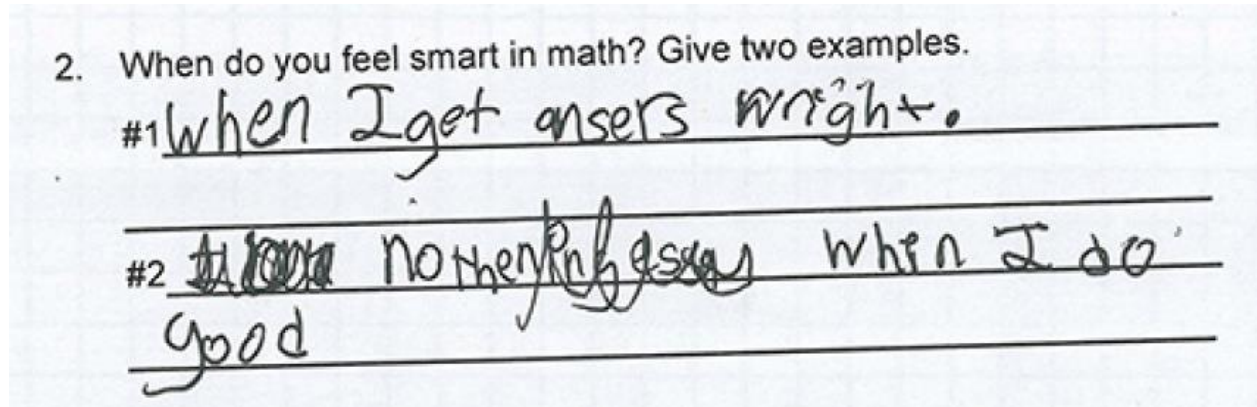 2. When do you feel smart in math? Give two examples.
#1 When I get ansers wright.
#2 when I do
good